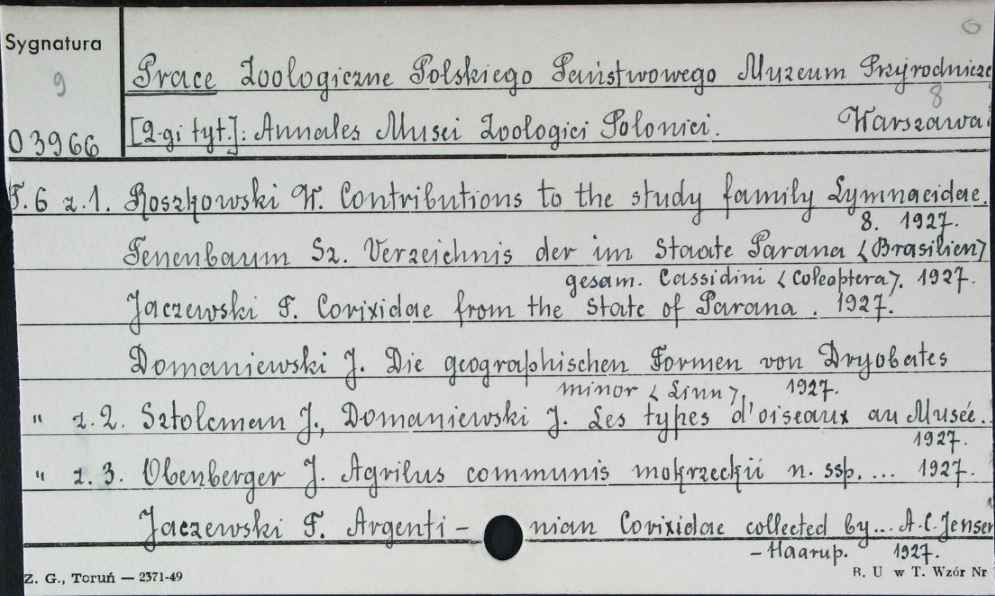 Sygnatura
9
6
Prace Zoologiczne Polskiego Państwowego Muzeum Przyrodnicze
8
03966
[2-gi tyt.]: Annales Musei Zoologici Polonici. Warszawa
T. 6 z. 1. Roszkowski W. Contributions to the study family Lymnaeidae.
8. 1927.
Tenenbaum Sz. Verzeichnis der im Staate Parana (Brasilien)
gesam. Cassidini (Coleoptera). 1927.
Jaczewski T. Corixidae from the State of Parana. 1927.
Domaniewski J. Die geographischen Formen von Dryobates
minor (Linn), 1927.
" z. 2. Sztolcman J., Domaniewski J. Les types d'oiseaux au Musée..
1927.
" z. 3. Obenberger J. Agrilus communis mokrzeckii n. ssp. ... 1927.
Jaczewski T. Argenti - nian Corixidae collected by... A.C. Jensen
- Haarup. 1927.
Z. G., Toruń — 2371-49
R. U w T. Wzór Nr